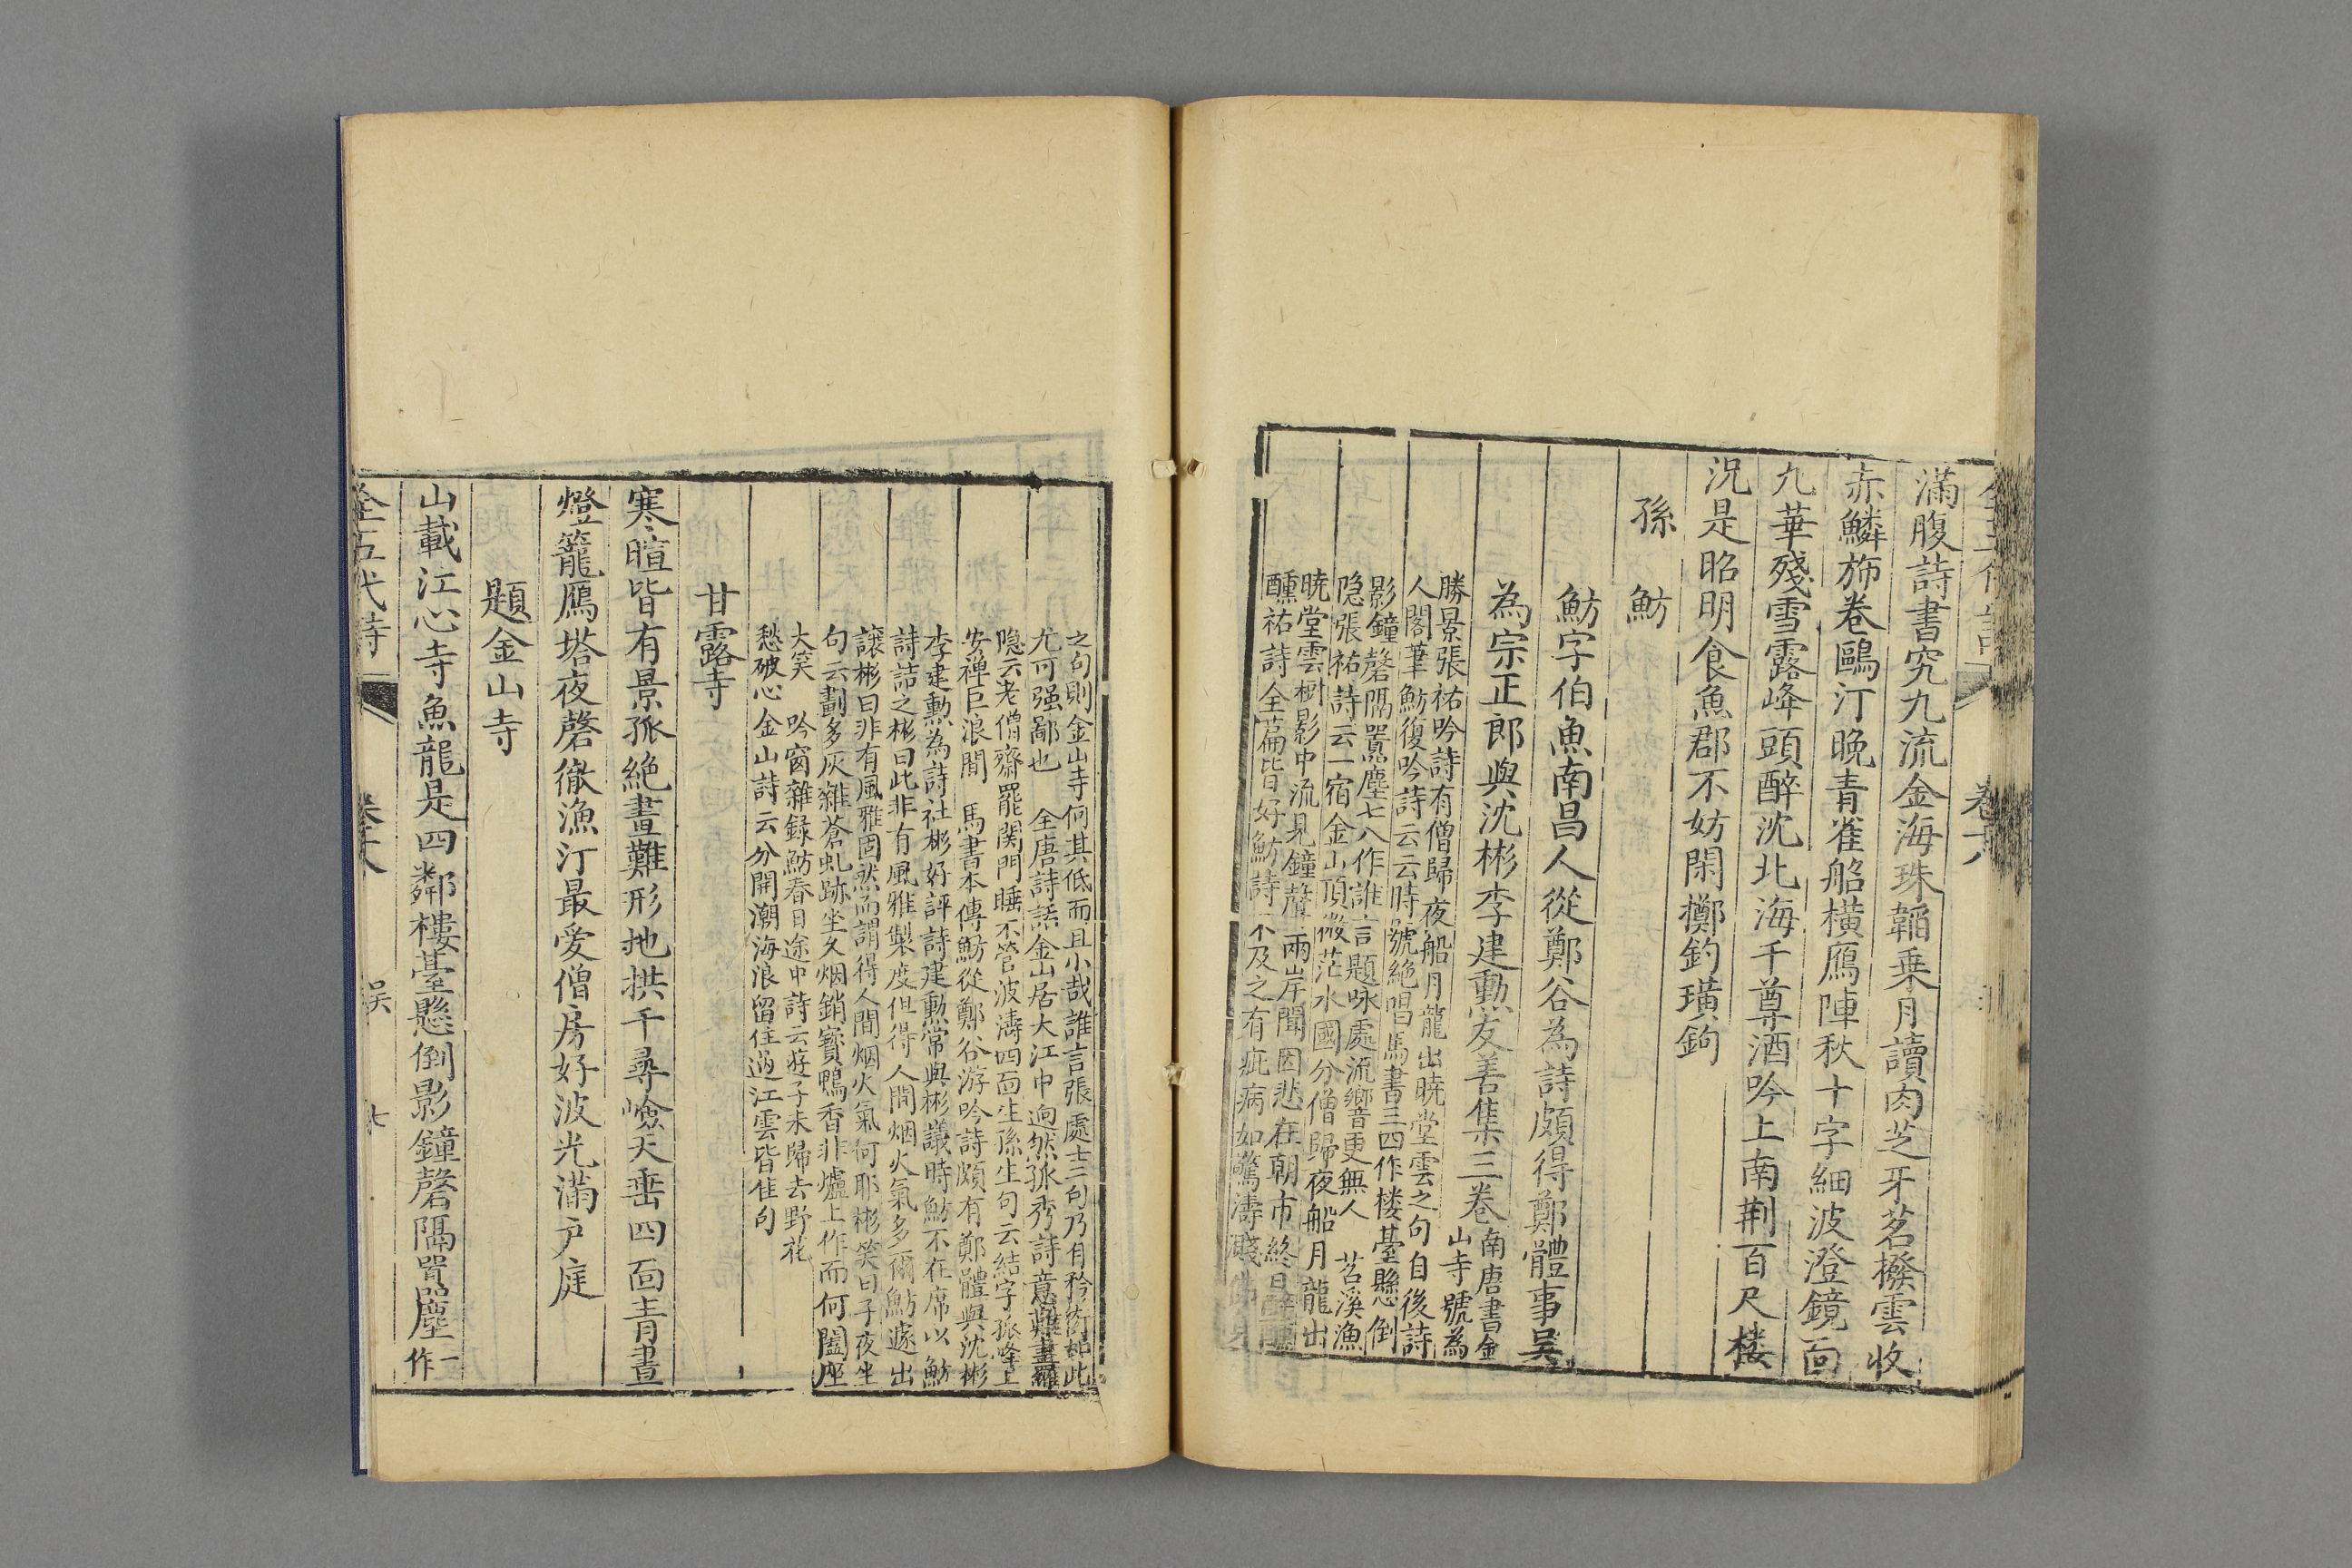 滿腹詩書究九流金海珠韜乗月讀肉芝牙茗撥雲收
赤鱗斾卷鷗汀晚青雀船橫鴈陣秋十字細波澄鏡面
九華殘雪露峰頭醉沈北海千尊酒吟上南荆百尺楼
況是昭明食魚郡不妨閑擲釣璜鉤
孫魴
魴字伯魚南昌人從鄭谷為詩頗得鄭體事吴
為宗正郎與沈彬李建勲友善集三卷
南唐書金
山寺號為
勝景張祐吟詩有僧歸夜船月龍出曉堂雲之句自後詩
人閣筆魴復吟詩云云時號絶唱馬書三四作楼臺懸倒
影鐘磬隔嚣塵七八作誰言題咏處流響更無人 苕溪漁
隐張祐詩云一宿金山頂微茫水國分僧歸夜船月龍出
曉堂雲樹影中流見鐘聲兩岸聞因悲在朝市終日醉醺
醺祐詩全篇皆好魴詩不及之有疵病如驚濤濺佛身
之句則金山寺何其低而且小哉誰言張處士二句乃自矜衒如此
尤可强鄙也 全唐詩話金山居大江中迥然孤秀詩意難盡羅
隐云老僧齋罷関門睡不管波濤四面生孫生句云結宇孤峰上
安禅巨浪間 馬書本傳魴從鄭谷游吟詩頗有鄭體與沈彬
李建勲為詩社彬好評詩建勲常與彬議時魴不在席以魴
詩詰之彬曰此非有風雅製度但得人間烟火氣多爾魴遽出
讓彬曰非有風雅固然而謂得人間烟火氣何耶彬笑曰子夜坐
句云劃多灰雜蒼虬跡坐久烟銷寳鴨香非爐上作而何闔座
大笑 吟窗雜録魴春日途中詩云遊子未歸去野花
愁破心金山詩云分開潮海浪留住過江雲皆佳句
甘露寺
寒暄皆有景孤絶畫難形地拱千尋嶮天垂四面青晝
燈籠鴈塔夜磬徹漁汀最愛僧房好波光滿户庭
題金山寺
山載江心寺魚龍是四鄰樓臺懸倒影鐘磬隔嚣塵一作
全五代詩 卷十八 吴 七